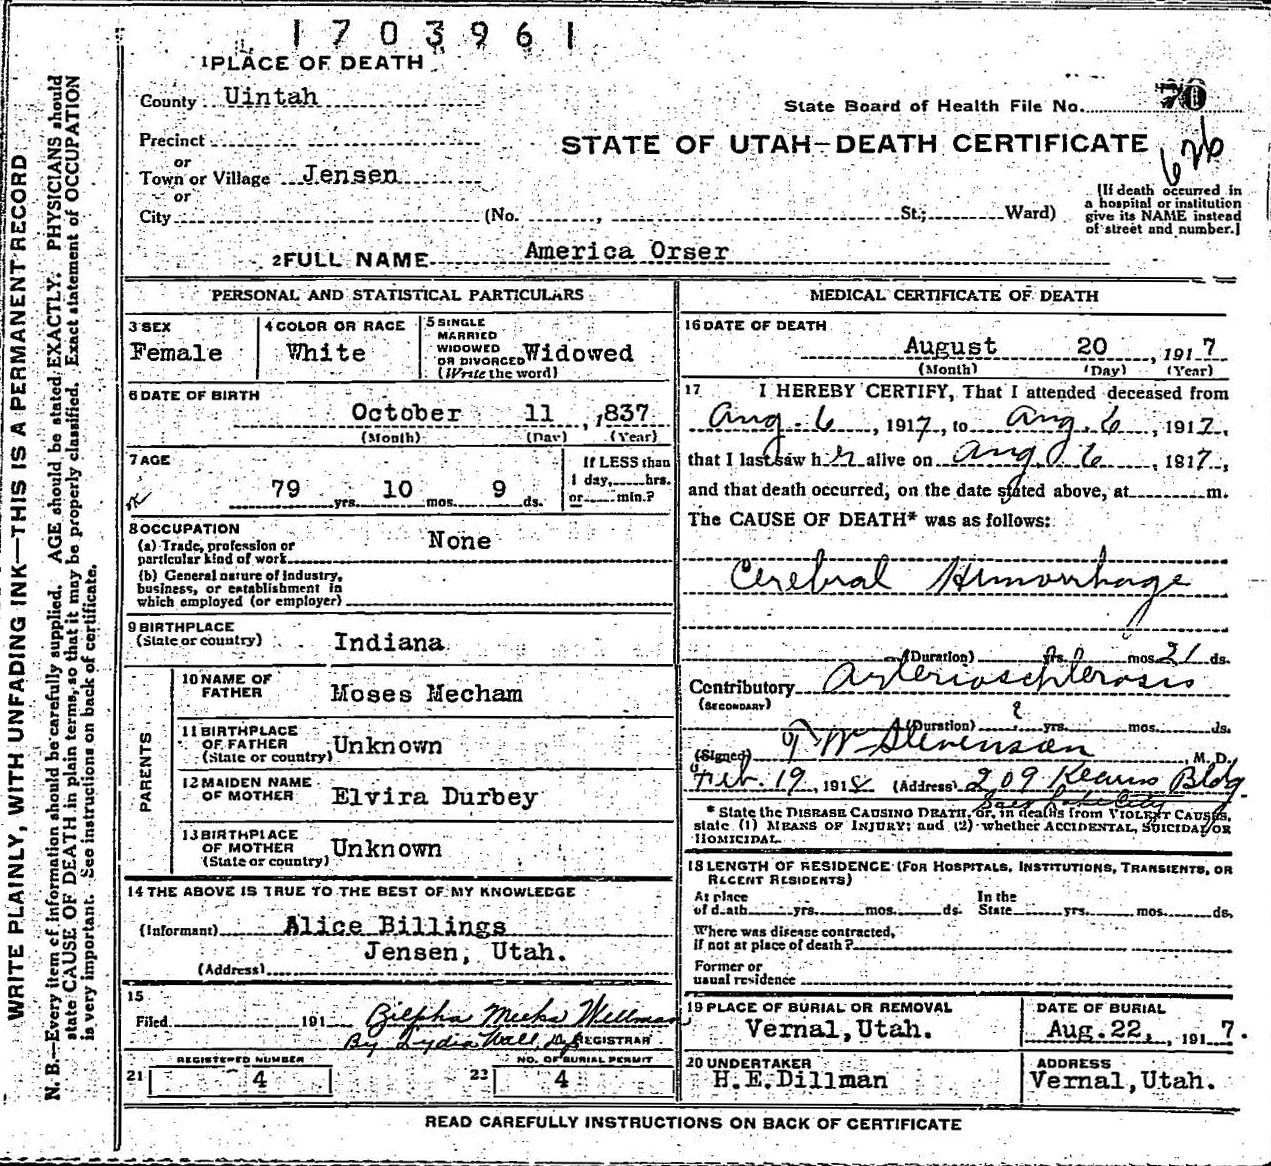 1703961
1 PLACE OF DEATH
County Uintah
State Board of Health File No. 70
Precinct
STATE OF UTAH—DEATH CERTIFICATE
626
or
Town or Village Jensen
or
City (No. , St.; Ward)
[If death occurred in
a hospital or institution
give its NAME instead
of street and number.]
2 FULL NAME America Orser
PERSONAL AND STATISTICAL PARTICULARS
3 SEX
Female
4 COLOR OR RACE
White
5 SINGLE
MARRIED
WIDOWED
OR DIVORCED Widowed
(Write the word)
6 DATE OF BIRTH
October 11, 1837
(Month) (Day) (Year)
7 AGE
79 yrs. 10 mos. 9 ds.
If LESS than
1 day, hrs.
or min.?
8 OCCUPATION
(a) Trade, profession or
particular kind of work None
(b) General nature of industry,
business, or establishment in
which employed (or employer)
9 BIRTHPLACE
(State or country) Indiana
PARENTS
10 NAME OF
FATHER Moses Mecham
11 BIRTHPLACE
OF FATHER
(State or country) Unknown
12 MAIDEN NAME
OF MOTHER Elvira Durbey
13 BIRTHPLACE
OF MOTHER
(State or country) Unknown
14 THE ABOVE IS TRUE TO THE BEST OF MY KNOWLEDGE
(Informant) Alice Billings
Jensen, Utah.
(Address)
15
Filed 191 Zilpha Meeks Wellman
By Lydia Wall, Dep REGISTRAR
REGISTERED NUMBER
21 4
NO. OF BURIAL PERMIT
22 4
MEDICAL CERTIFICATE OF DEATH
16 DATE OF DEATH
August 20, 1917
(Month) (Day) (Year)
17 I HEREBY CERTIFY, That I attended deceased from
Aug. 6, 1917, to Aug. 6, 1917,
that I last saw her alive on Aug. 6, 1917,
and that death occurred, on the date stated above, at m.
The CAUSE OF DEATH* was as follows:
Cerebral Hemorrhage
(Duration) yrs. mos. 21 ds.
Contributory Arterioschlerosis
(SECONDARY)
(Duration) ? yrs. mos. ds.
(Signed) W Stevenson, M. D.
Feb. 19, 1918 (Address) 209 Kearns Bldg.
Salt Lake City
* State the DISEASE CAUSING DEATH, or, in deaths from VIOLENT CAUSES,
state (1) MEANS OF INJURY; and (2) whether ACCIDENTAL, SUICIDAL OR
HOMICIDAL.
18 LENGTH OF RESIDENCE (FOR HOSPITALS, INSTITUTIONS, TRANSIENTS, OR
RECENT RESIDENTS)
At place In the
of death yrs. mos. ds. State yrs. mos. ds.
Where was disease contracted,
if not at place of death?
Former or
usual residence
19 PLACE OF BURIAL OR REMOVAL
Vernal, Utah.
DATE OF BURIAL
Aug. 22, 1917.
20 UNDERTAKER
H.E.Dillman
ADDRESS
Vernal, Utah.
READ CAREFULLY INSTRUCTIONS ON BACK OF CERTIFICATE
WRITE PLAINLY, WITH UNFADING INK—THIS IS A PERMANENT RECORD
N. B.—Every item of information should be carefully supplied. AGE should be stated EXACTLY. PHYSICIANS should
state CAUSE OF DEATH in plain terms, so that it may be properly classified. Exact statement of OCCUPATION
is very important. See instructions on back of certificate.